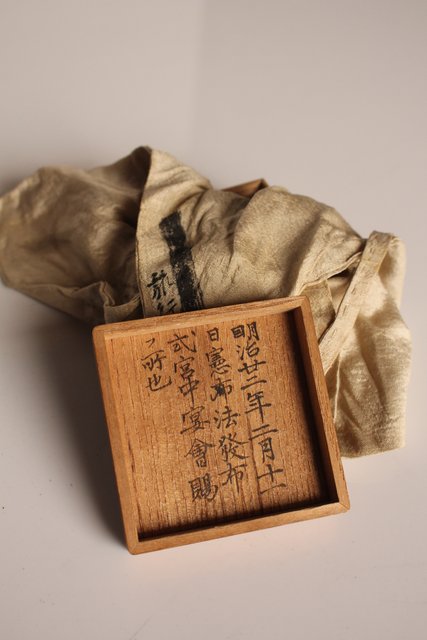 明治廿二年二月十一
日憲法發布
式宮中宴會賜
フ所也